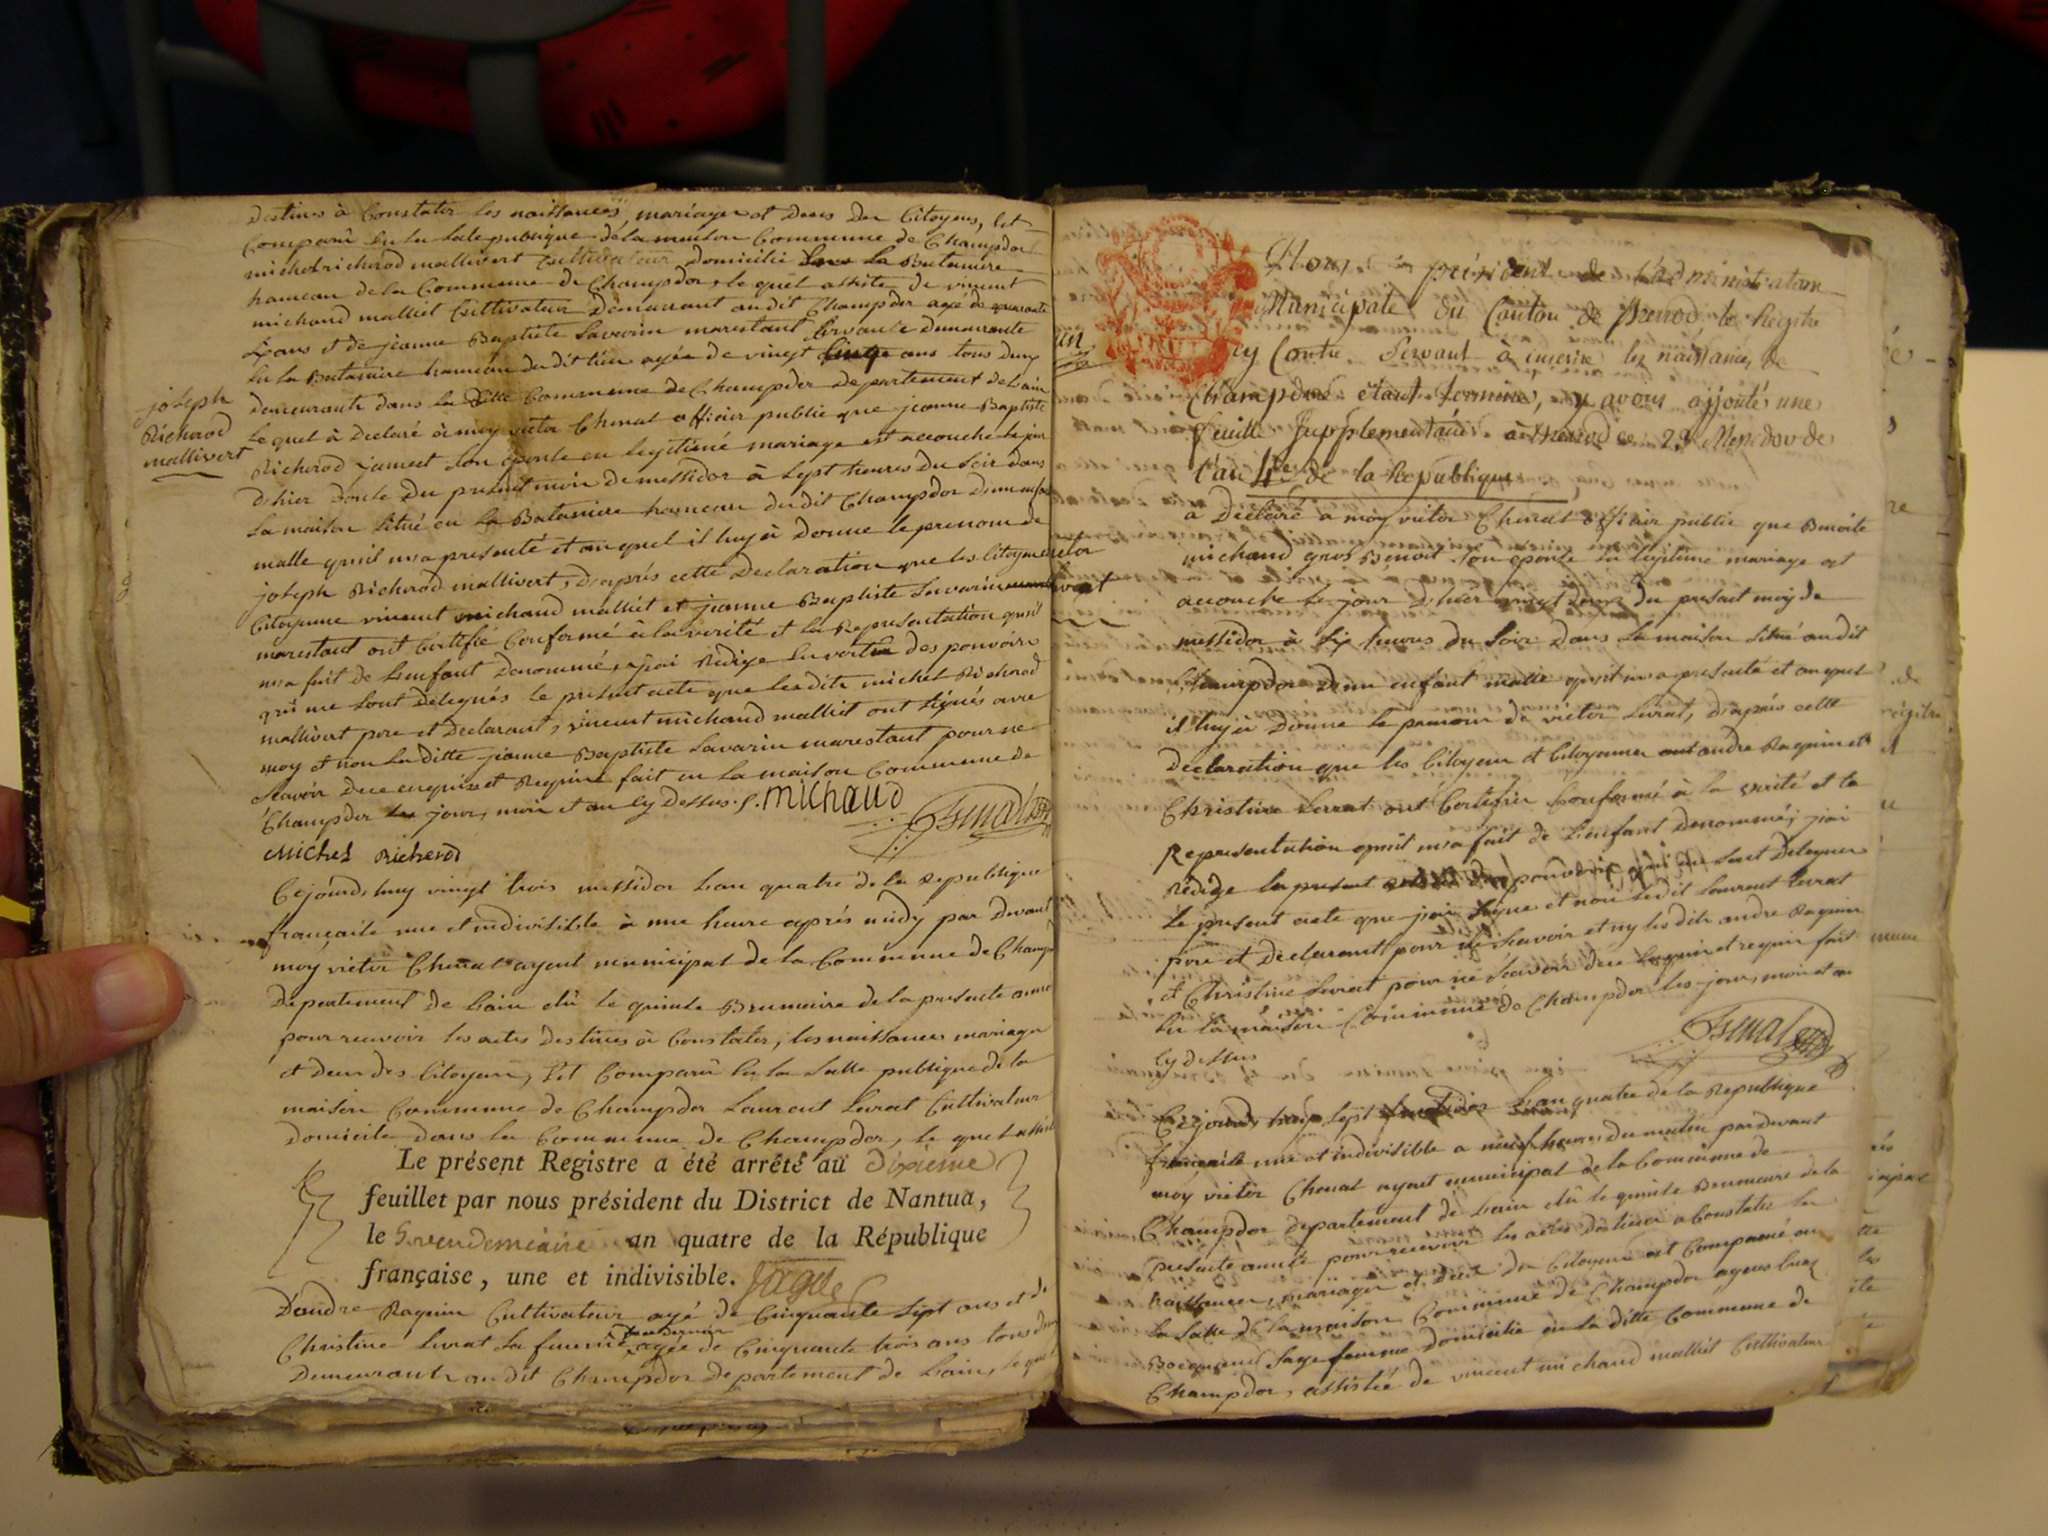 destinés à Constater les naissances, mariages et deces des Citoyens, Est
Comparû en la sale publique dela maison Commune de Champdor
michel richerod mallivert Cultivateur domicilié La Bataniere
hameau de la Commune de Champdor, le quel assisté de vincent
michaud malliet Cultivateur demeurant au dit Champdor agé de quarante
ans et de jeanne Baptiste Savarin marestant servante demeurante
en la Bataniere hameau du dit lieu agée de vingt ans tous deux
demeurants dans la ditte Commune de Champdor departement de Lain
Le quel à declaré à moy victor Chenat officier public que jeanne Baptiste
Richerod jamet son epouse en legitime mariage est accouché le jour
d'hier du present mois de messidor à sept heures du soir dans
la maison situé en la Bataniere hameau du dit Champdor d'un enfant
malle qu'il m'a presenté et au quel il luy à donné le prenom de
joseph Richerod mallivert, d'aprés cette declaration que les Citoyens et
Citoyenne vincent michaud malliet et jeanne Baptiste Savarin
marestant ont Certifié Conforme à la verité et la Representation qu'il
m'a fait de L'enfant denommé, j'ai Rédigé en vertu des pouvoirs
qui me sont délegués le present acte que lesdits michel Richerod
mallivert pere et declarant, vincent michaud malliet ont signés avec
moy et non La ditte jeanne Baptiste Savarin marestant pour ne
scavoir de ce enquise et Requise fait en la maison Commune de
Champdor les jour, mois et an cy dessus.
michaud
Michel Richerod
joseph
Richerod
mallivert
Cejourd'huy vingt trois messidor L'an quatre de la Republique
françaite une et indivisible à une heure aprés midy par devant
moy victor Chenat agent municipal de la Commune de Champdor
departement de Lain élû le quinze Brumaire de la presente année
pour recevoir les actes destinés à Constater, les naissances mariages
et deces des Citoyens, Est Comparû en la salle publique de la
maison Commune de Champdor Laurent Livrat Cultivateur
domicilié dans la Commune de Champdor, le quel assisté
Le présent Registre a été arrêté au dixieme
feuillet par nous président du District de Nantua,
le vendemiaire an quatre de la République
française, une et indivisible.
D'andre Raquin Cultivateur agé de Cinquante sept ans et de
Christine Livrat sa femme agée de Cinquante trois ans tous deux
Demeurants au dit Champdor departement de Lain, le quel
Nous président de l'administration
Municipale du Canton de le Registre
cy Contre Servant à inscrire les naissances de
Champdor étant terminé, y avons ajouté une
feuille supplementaire à ce 23 Messidor de
l'an 4e de la Republique
a Declaré a moy victor Chenat officier public que Benoite
michaud gros Benoit son epouse en legitime mariage est
accouché le jour d'hier vingt deux du present moy de
messidor à six heures du soir dans la maison situé au dit
Champdor d'un enfant malle qu'il m'a presenté et au quel
il luy à donné le prenom de victor Livrat, d'aprés cette
declaration que les Citoyen et Citoyenne andre Raquin et
Christine Livrat ont Certifiés Conforme à la verité et la
Representation qu'il m'a fait de L'enfant denommé, j'ai
Rédigé pouvoirs qui me sont délegués
Le present acte que j'ai signé et non le dit Laurent Livrat
pere et declarant pour ne scavoir et ny les dits andre Raquin
et Christine Livrat pour ne scavoir de ce Enquis et requis fait
En la maison Commune de Champdor les jour, mois et an
Cy dessus
Cejourd'huy sept L'an quatre de la Republique
française une et indivisible a neuf heures du matin par devant
moy victor Chenat agent municipal de la Commune de
Champdor departement de Lain élû le quinze Brumaire de la
presente année pour recevoir les actes destinés a Constater les
naissances, mariages et deces des Citoyens est Comparue en
la salle de la maison Commune de Champdor
sage femme domicilié en la ditte Commune de
Champdor, assistée de vincent michaud malliet Cultivateur